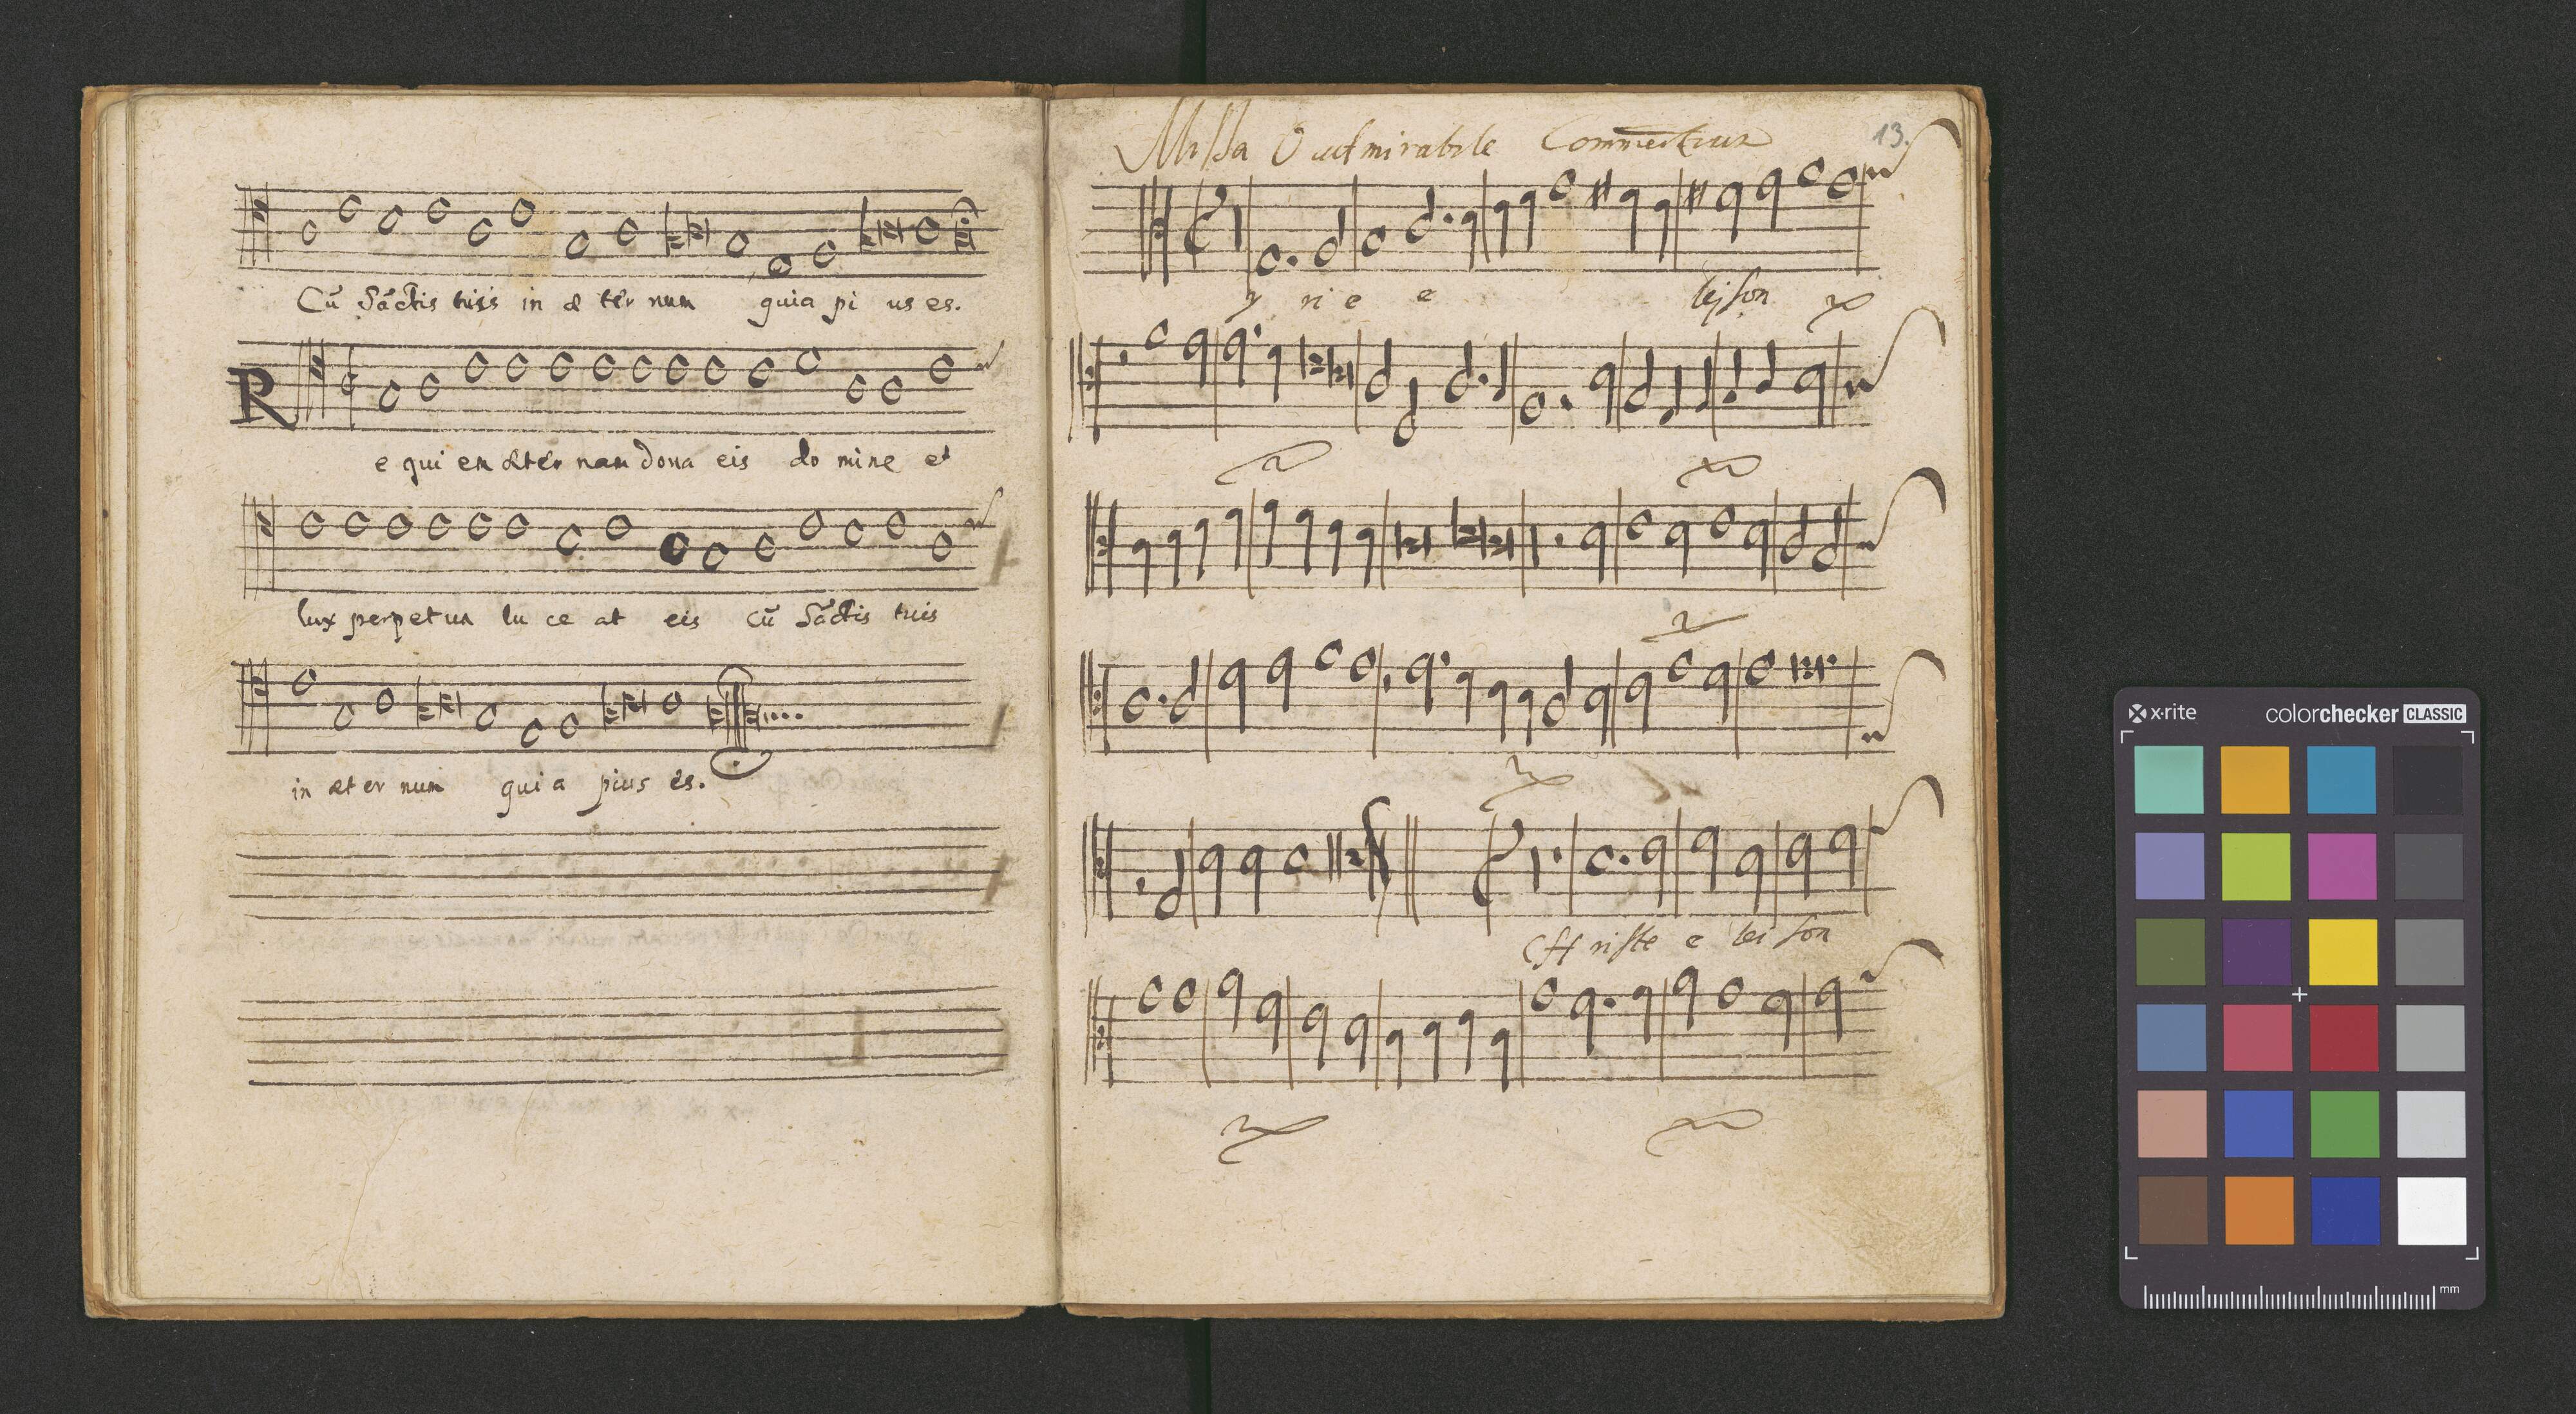 Cū Sāctis tuis in æ ter num quia pi us es.
R
e qui em æter nam dona eis do mine et
lux perpetua lu ce at eis cū Sāctis tuis
in æt er num qui a pius es.
Missa O admirabile Commertium
13.
y ri e e leison
CH riste e lei son
x·rite colorchecker CLASSIC
mm